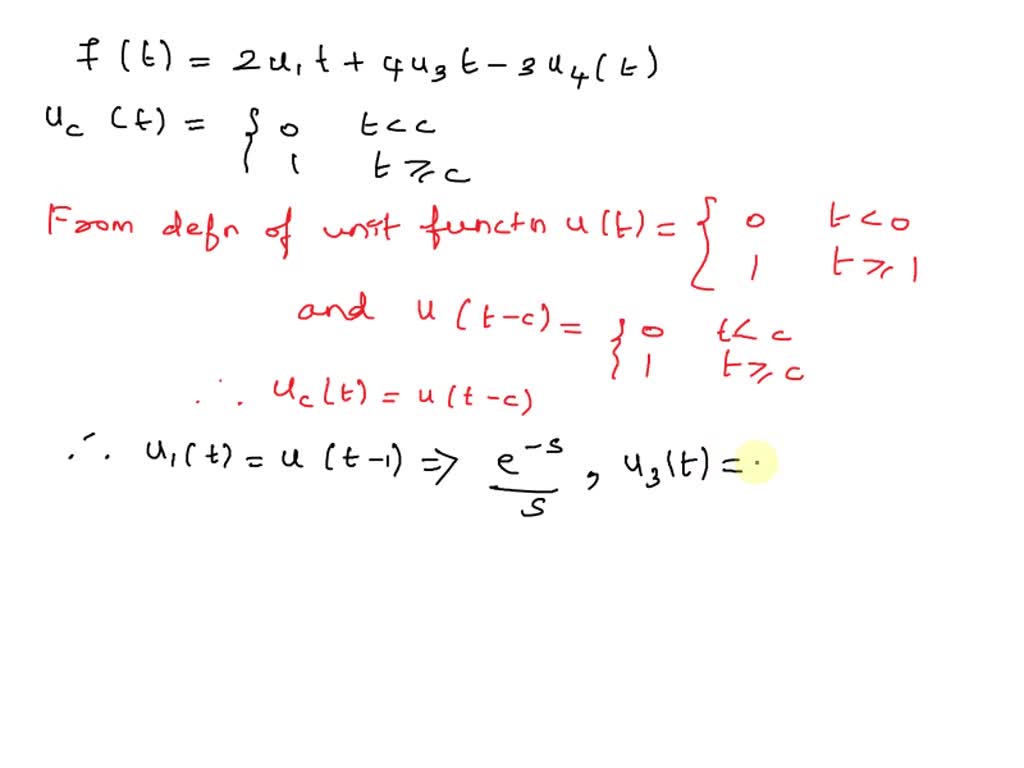 f(t) = 2u₁t + 4u₃t - 3u₄(t)
u_c (t) = { 0 t < c
1 t ⩾ c
From defn of unit functn u(t) = { 0 t < 0
1 t ⩾ 1
and u(t-c) = { 0 t < c
1 t ⩾ c
∴ u_c(t) = u(t-c)
∴ u₁(t) = u(t-1) ⇒ e^-s / s , u₃(t) =